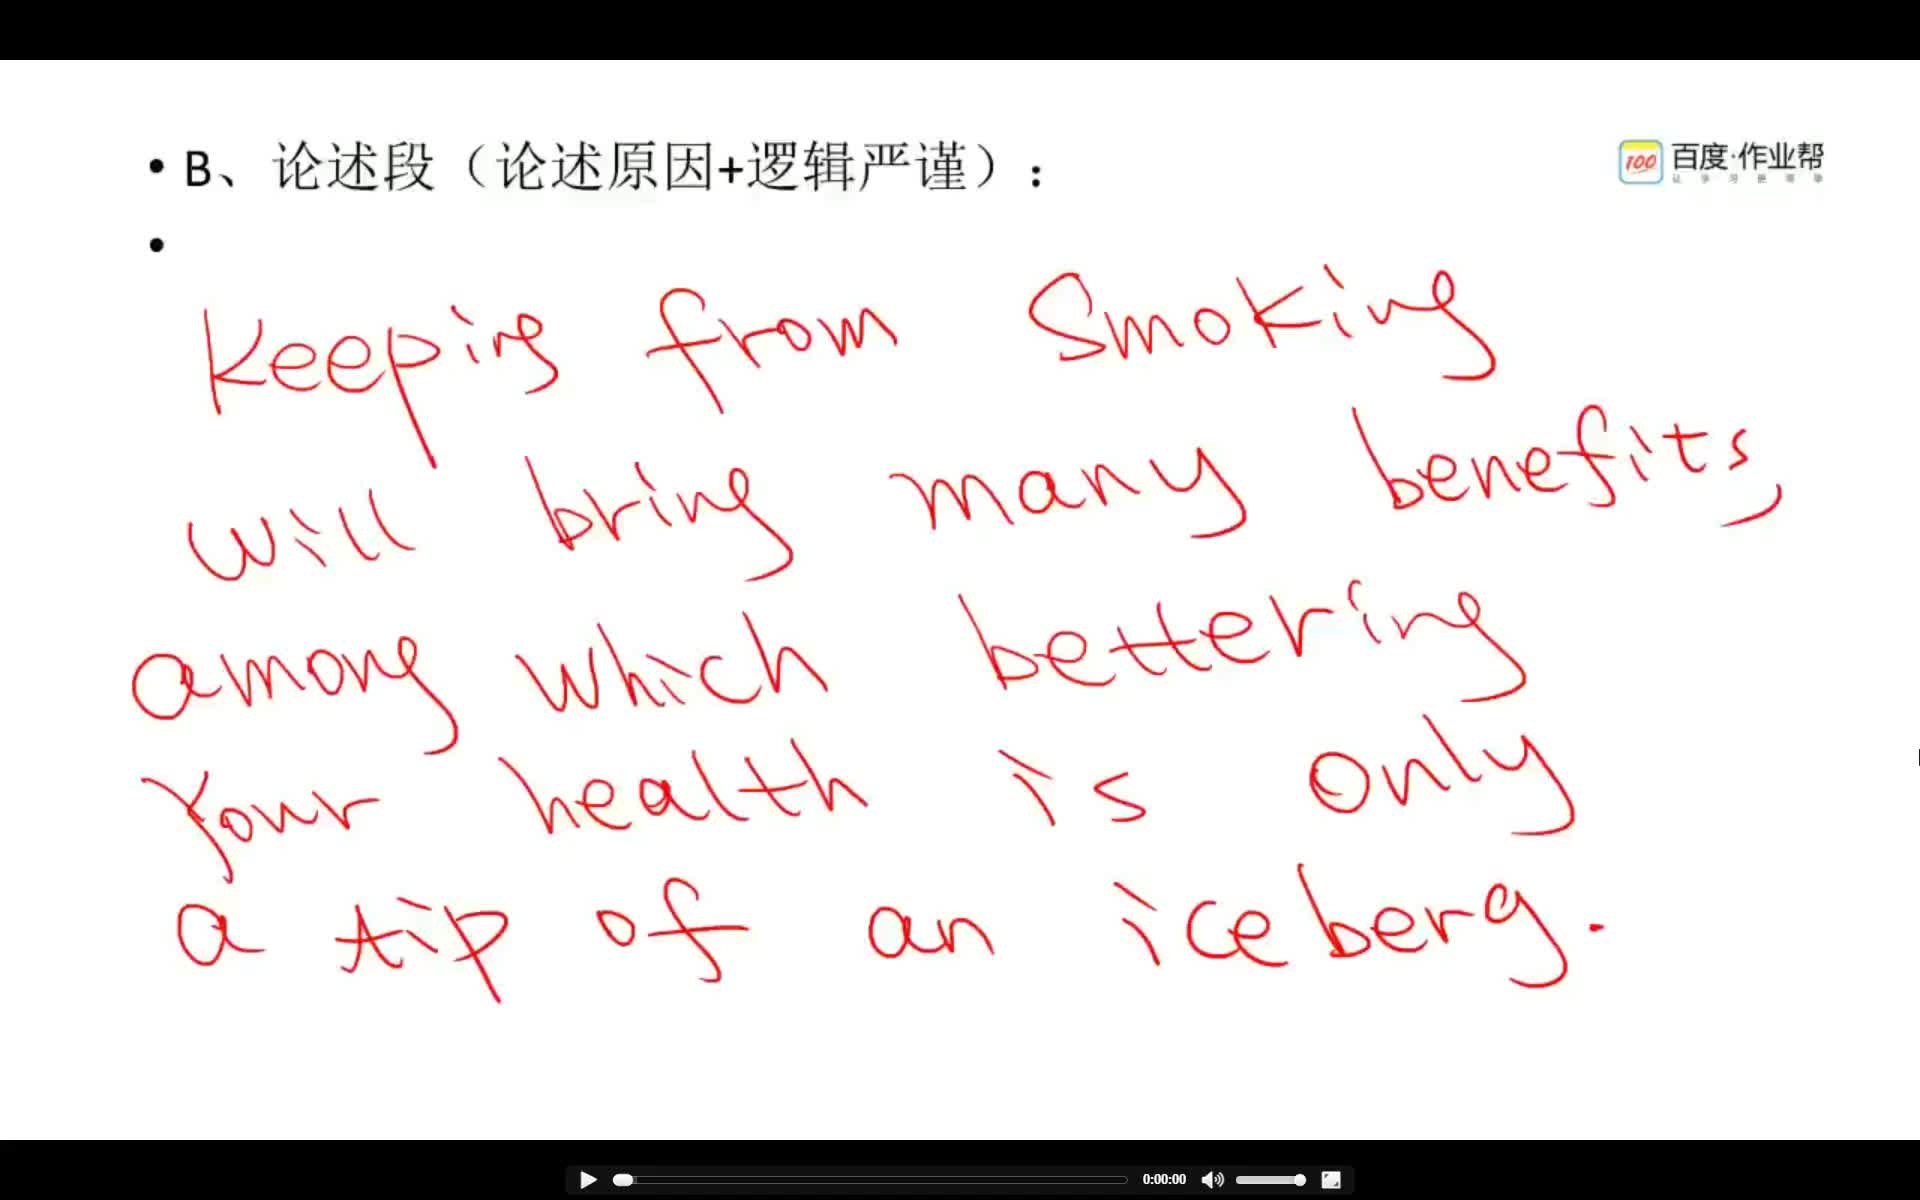 • B、论述段（论述原因+逻辑严谨）：
100 百度·作业帮
•
Keeping from Smoking
will bring many benefits,
among which bettering
Your health is only
a tip of an iceberg.
0:00:00